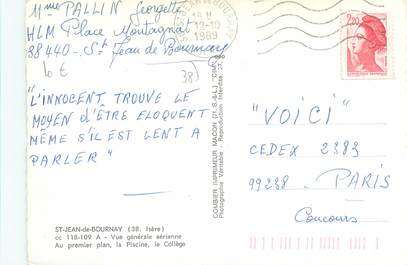 Mme PALLIN Georgette
HLM Place Montagnat
38440 - St Jean de Bournay
38)
"L'INNOCENT TROUVE LE
MOYEN D'ÊTRE ELOQUENT
MÊME S'IL EST LENT A
PARLER"
ST-JEAN-de-BOURNAY (38. Isère)
cc 118-109 A - Vue générale aérienne
Au premier plan, la Piscine, le Collège
COMBIER IMPRIMEUR MACON (71. S.-&-L.) "CIM"
Photographie Véritable - Reproductions Interdites.
1989
2,20
"VOICI"
CEDEX 2383
99238 - PARIS
Concours